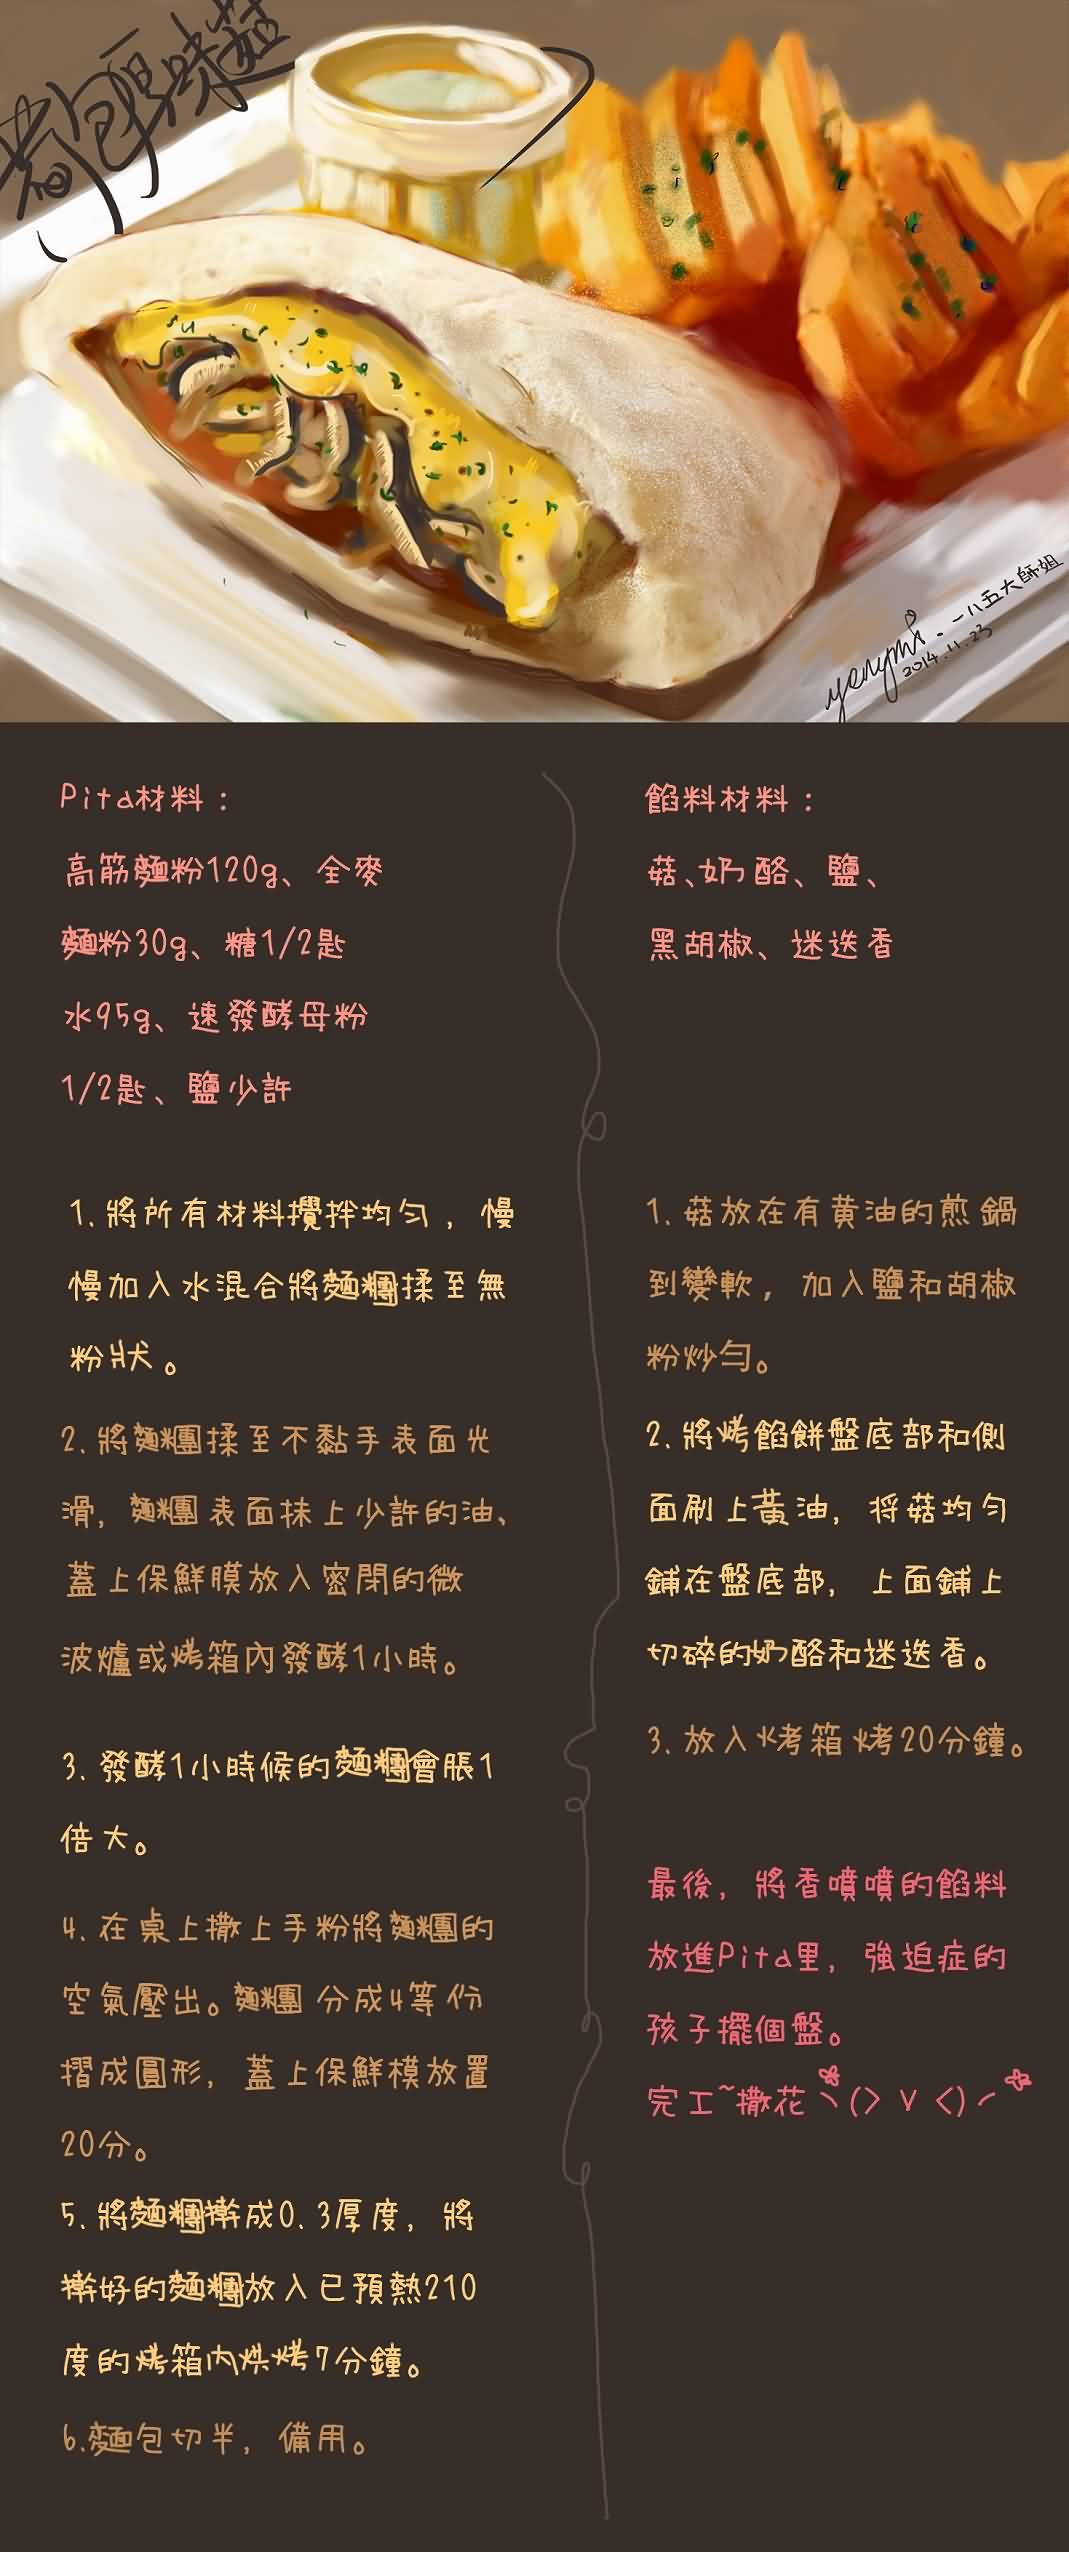 yenymi.一八五大師姐
2014.11.23
Pita材料：
高筋麵粉120g、全麥
麵粉30g、糖1/2匙
水95g、速發酵母粉
1/2匙、鹽少許
1.將所有材料攪拌均勻，慢
慢加入水混合將麵糰揉至無
粉狀。
2.將麵糰揉至不黏手表面光
滑，麵糰表面抹上少許的油、
蓋上保鮮膜放入密閉的微
波爐或烤箱內發酵1小時。
3.發酵1小時候的麵糰會脹1
倍大。
4.在桌上撒上手粉將麵糰的
空氣壓出。麵糰 分成4等份
摺成圓形，蓋上保鮮模放置
20分。
5.將麵糰擀成0.3厚度，將
擀好的麵糰放入已預熱210
度的烤箱內烘烤7分鐘。
6.麵包切半，備用。
餡料材料：
菇、奶酪、鹽、
黑胡椒、迷迭香
1.菇放在有黃油的煎鍋
到變軟，加入鹽和胡椒
粉炒勻。
2.將烤餡餅盤底部和側
面刷上黃油，將菇均勻
鋪在盤底部，上面鋪上
切碎的奶酪和迷迭香。
3.放入烤箱烤20分鐘。
最後，將香噴噴的餡料
放進Pita里，強迫症的
孩子擺個盤。
完工~撒花ヽ(> v <)ノ